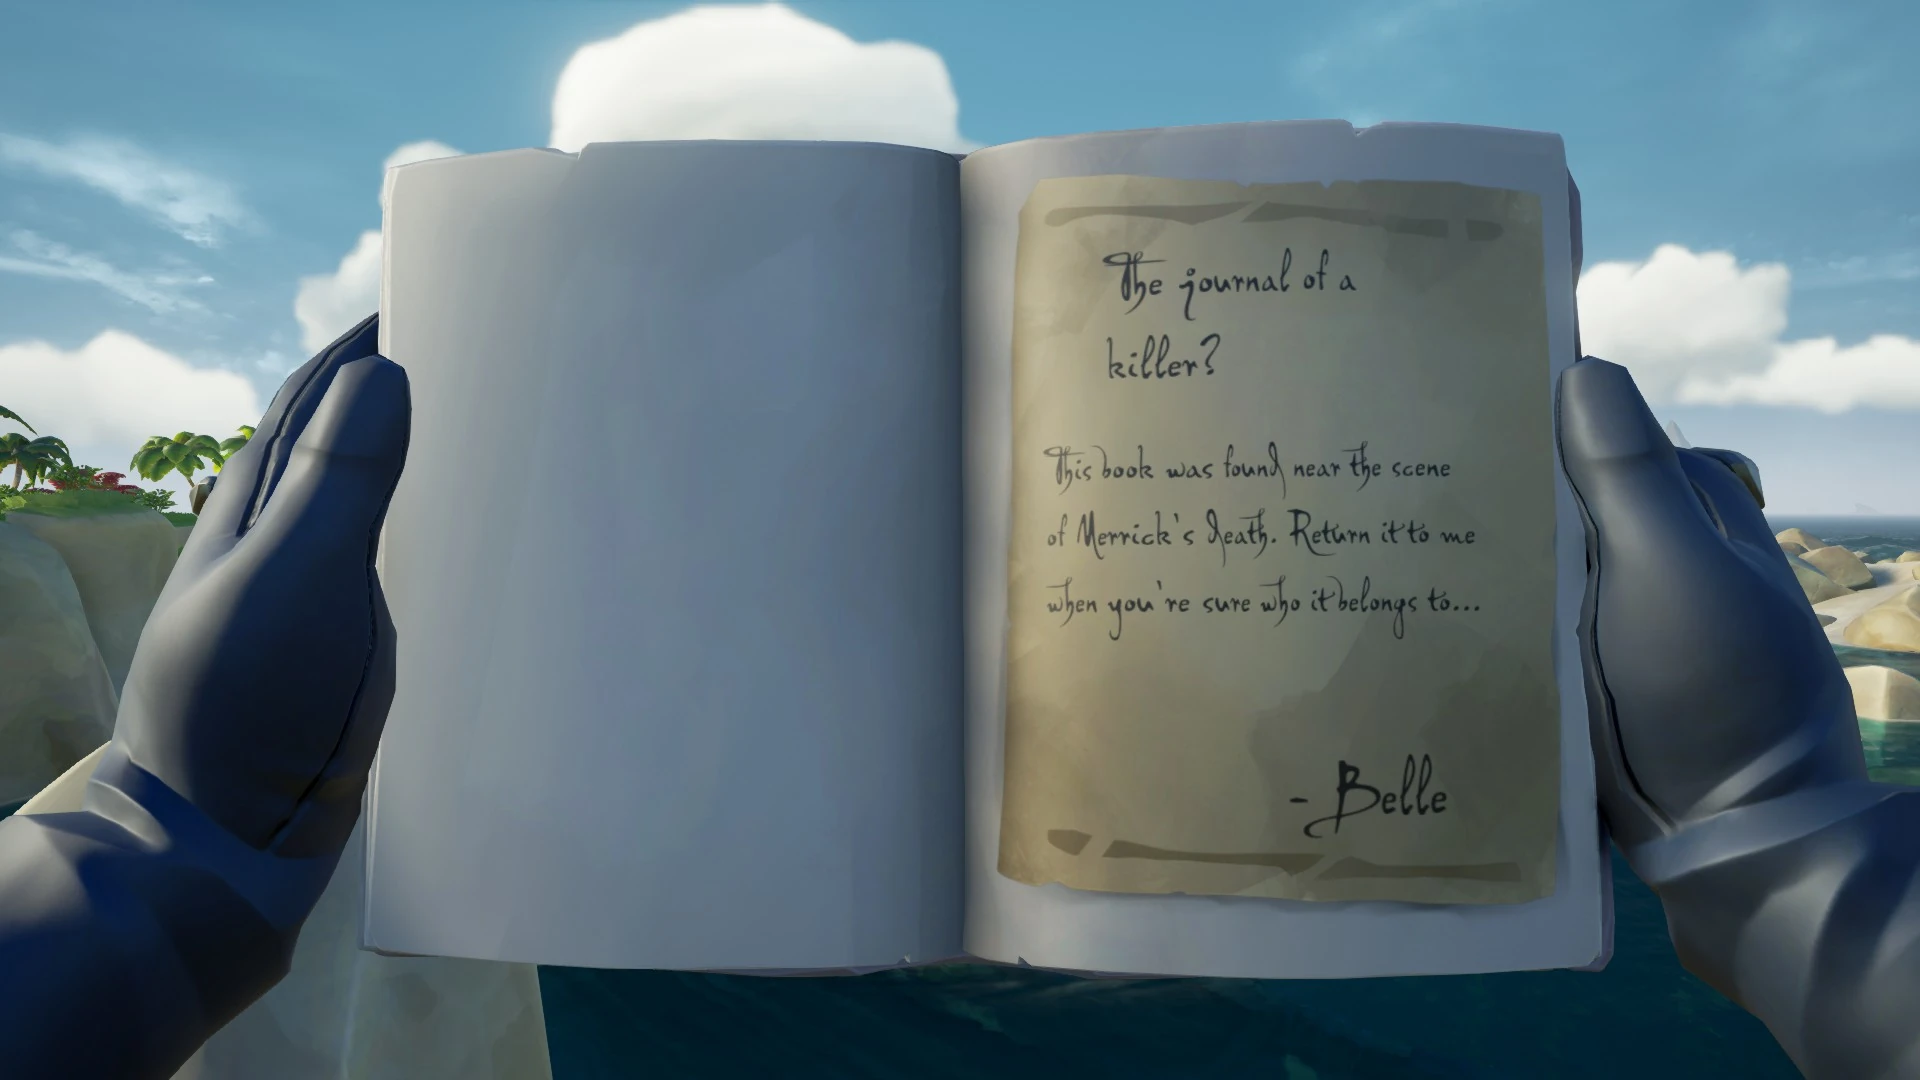 The journal of a
killer?
This book was found near the scene
of Merrick's death. Return it to me
when you're sure who it belongs to...
- Belle